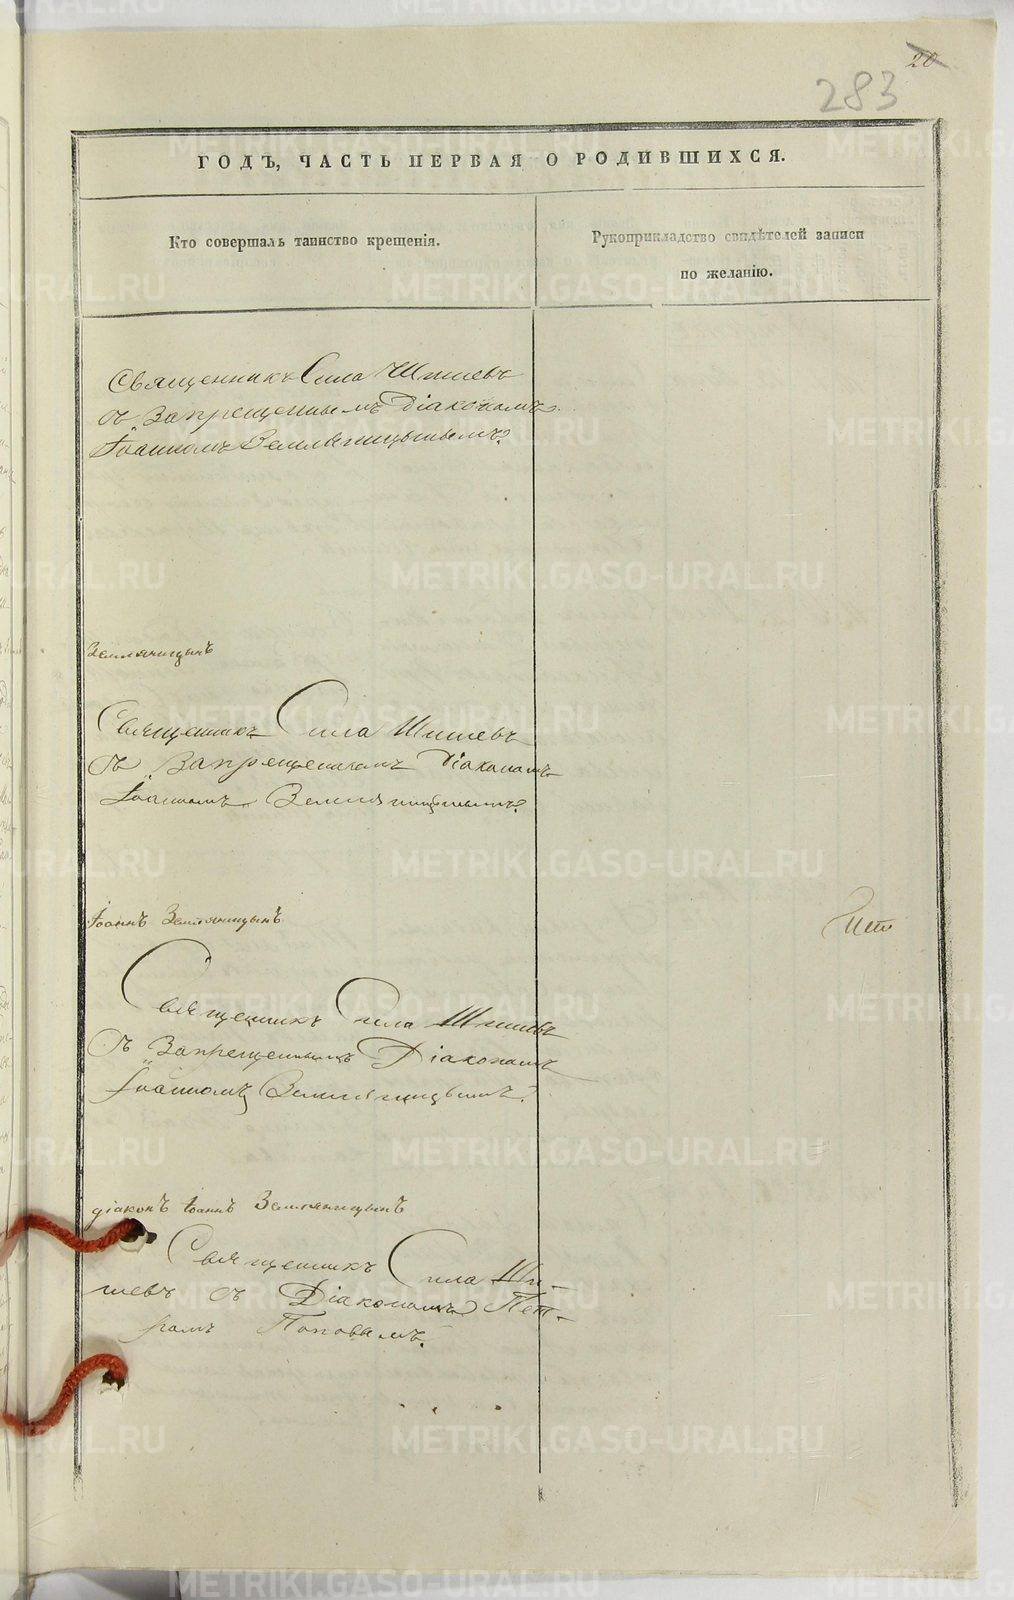 20
283
ГОДЪ, ЧАСТЬ ПЕРВАЯ О РОДИВШИХСЯ.
Кто совершалъ таинство крещенія.
Рукоприкладство свидѣтелей записи
по желанію.
Священникъ Сила Шишевъ
съ Запрещеннымъ Діакономъ
Іоанномъ Земляницынымъ.
Земляницынъ
Священникъ Сила Шишевъ
съ Запрещеннымъ Діакономъ
Іоанномъ Земляницынымъ.
Іоаннъ Земляницынъ
Священникъ Сила Шишевъ
съ Запрещеннымъ Діакономъ
Іоанномъ Земляницынымъ.
діаконъ Іоаннъ Земляницынъ
Священникъ Сила Ши-
шевъ съ Діакономъ Пет-
ромъ Поповымъ.
METRIKI.GASO-URAL.RU